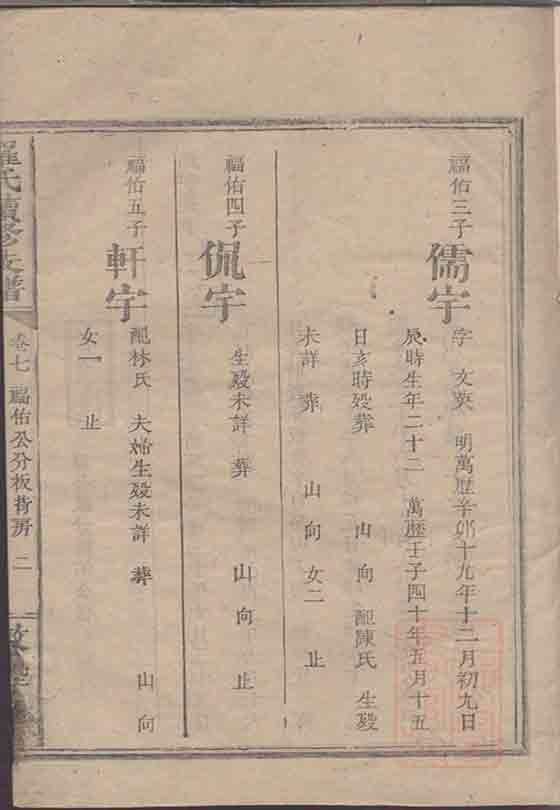 福佑三子
儒宇
字 文英 明萬歷辛卯十九年十二月初九日
辰時生年二十二 萬歷壬子四十年五月十五
日亥時歿葬 山 向 配陳氏 生歿
未詳 葬 山 向 女二 止
福佑四子
侃宇
生歿未詳 葬 山 向 止
福佑五子
軒宇
配林氏 夫婦生歿未詳 葬 山 向
女一 止
羅氏續修支譜
卷七 福佑公分板背房 二